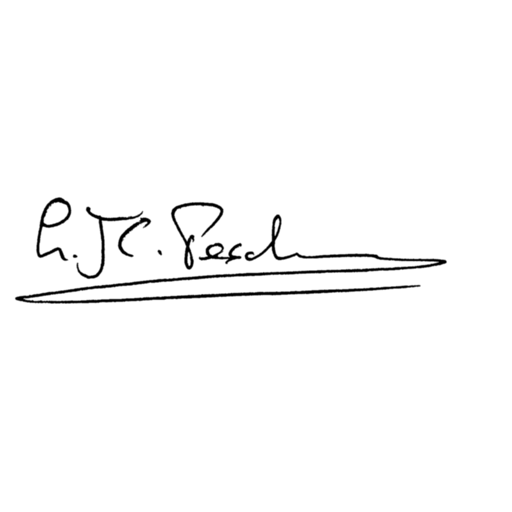 G. J C. Pesch